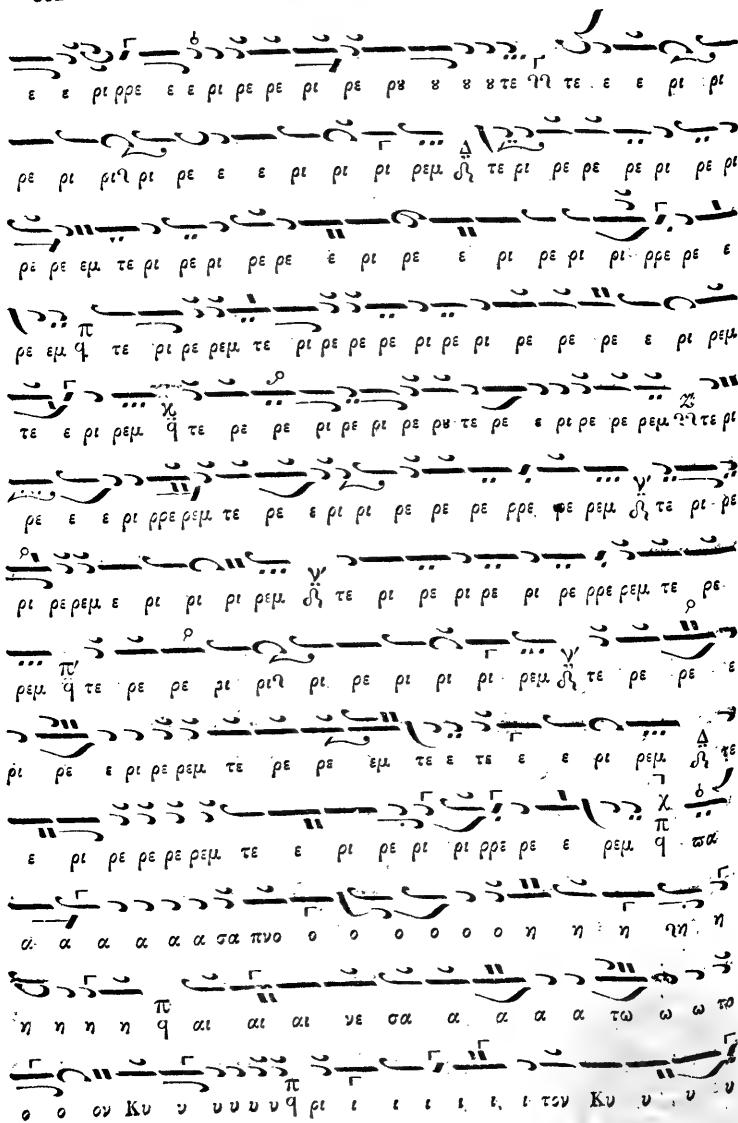 ε ε ρι ρρε ε ε ρι ρε ρε ρι ρε ρȣ ȣ ȣ ȣ τε τε ε ε ρι ρι
ρε ρι ρι ρι ρε ε ε ρι ρι ρι ρεμ Δ τε ρι ρε ρε ρε ρι ρε ρι
ρε ρε εμ τε ρι ρε ρι ρε ρε ε ρι ρε ε ρι ρε ρι ρι ρρε ρε ε
ρε εμ π q τε ρι ρε ρεμ τε ρι ρε ρε ρε ρι ρε ρι ρε ρε ρε ε ρι ρεμ
τε ε ρι ρεμ q τε ρε ρε ρι ρε ρι ρε ρȣ τε ρε ε ρι ρε ρε ρεμ Ζ τε ρι
ρε ε ε ρι ρρε ρεμ τε ρε ε ρι ρι ρε ρε ρε ρρε ρε ρεμ ν' τε ρι ρε
ρι ρε ρεμ ε ρι ρι ρι ρεμ ν' τε ρι ρε ρι ρε ρι ρε ρρε ρεμ τε ρε
ρεμ π' q τε ρε ρε ρι ρι ρι ρε ρι ρι ρι ρεμ ν' τε ρε ρε ε
ρι ρε ε ρι ρε ρεμ τε ρε ρε εμ τε ε τε ε ε ρι ρεμ Δ τε
ε ρι ρε ρε ρε ρεμ τε ε ρι ρε ρι ρι ρρε ρε ε ρεμ χ π q ϖα
α α α α α α σα πνο ο ο ο ο ο ο η η η η η
η η η η π q αι αι αι νε σα α α α α τω ω ω το
ο ο ον Κυ υ υ υ υ υ π q ρι ι ι ι ι ι ι τον Κυ υ υ υ υ